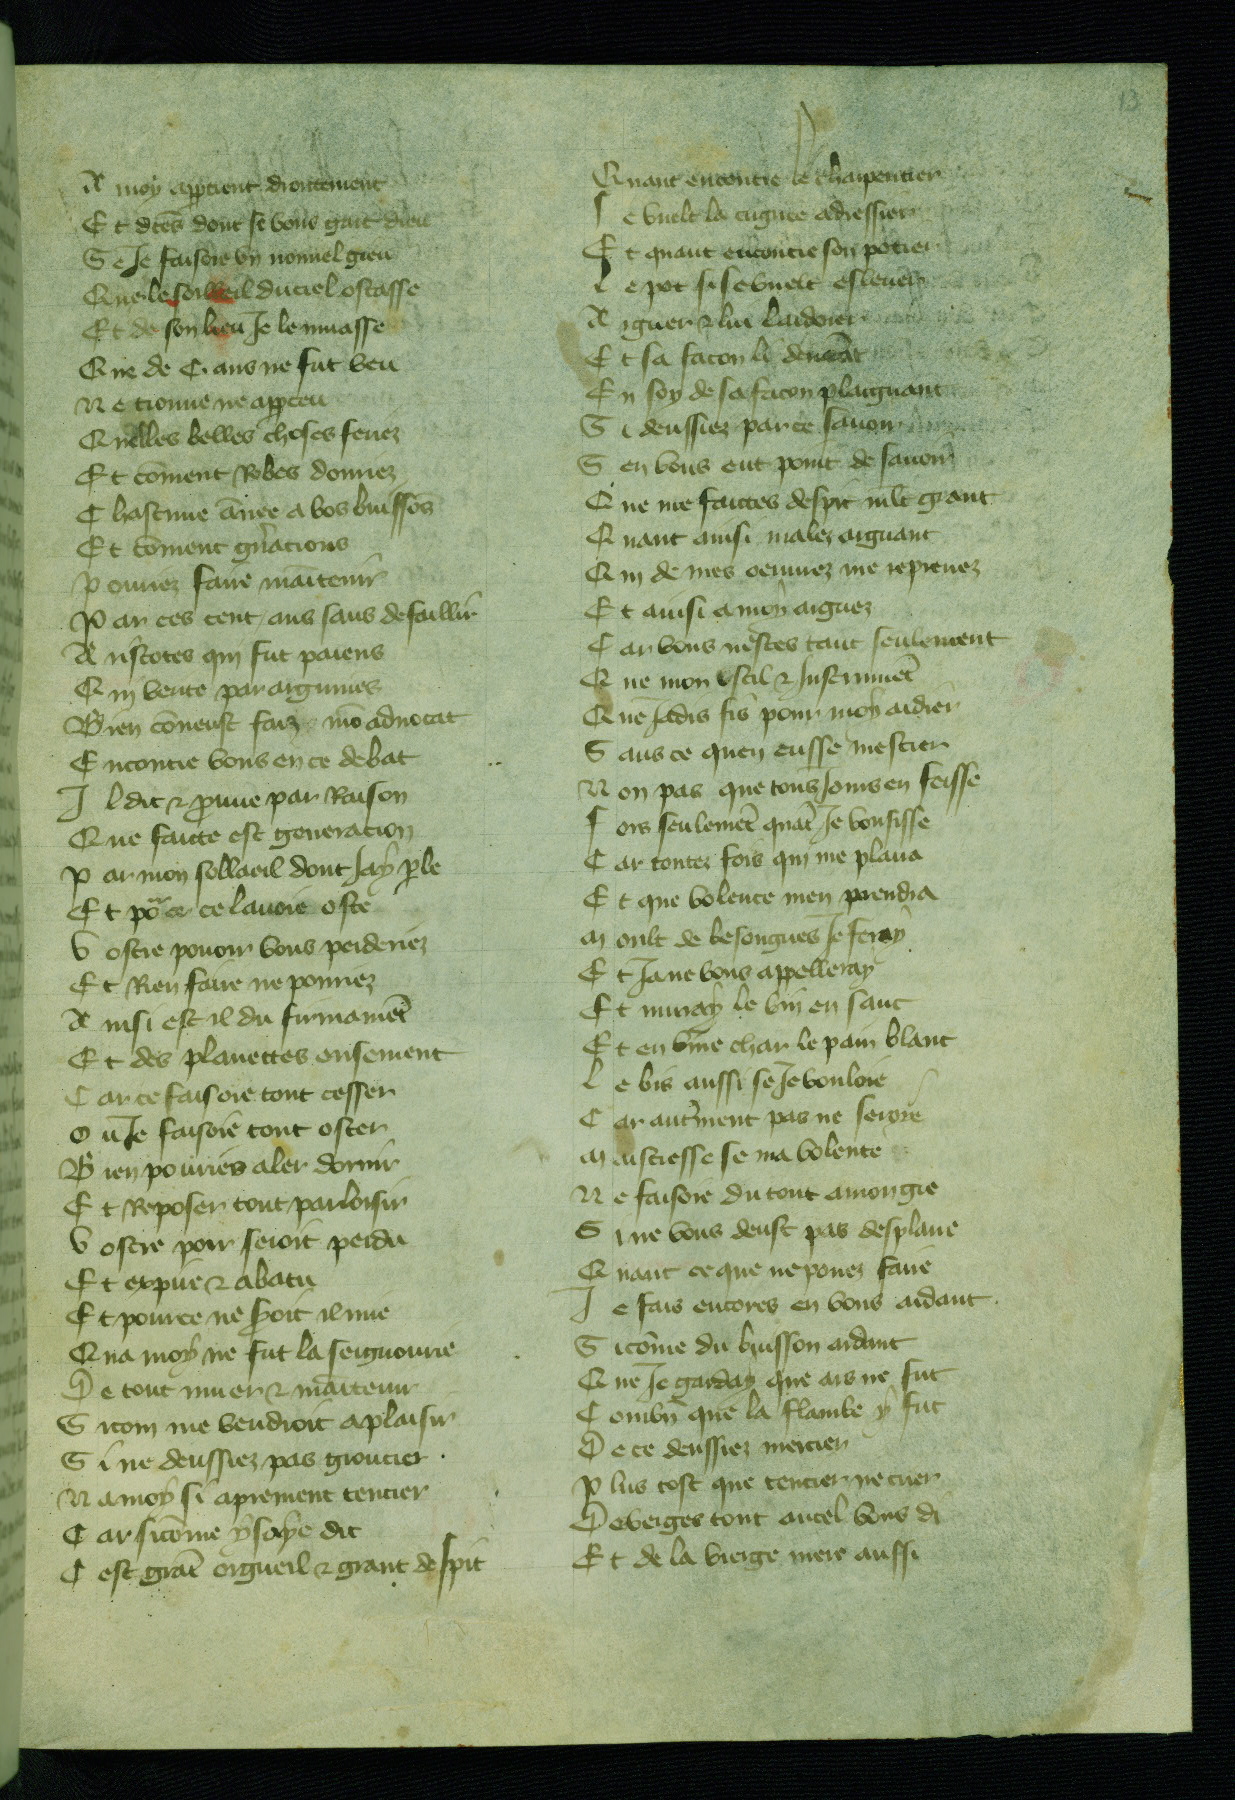 13
A moy apptient droittement
Et dtes dont se vous gart dieu
Se Je faisoie vn nouuel gieu
Que le soilleil du ciel ostasse
Et de son lieu Je le muasse
Que de C. ans ne fut veu
Ne trouue ne apceu
Quelles belles choses feriez
Et coment Robes donriez
Chascune anee a vos buissos
Et coment gnacions
Pouriez faire maitenir
Par ces cent ans sans defaillir
Aristotes qui fut paiens
Qui verite par argumes
Bien conеust faiz mo aduocat
Encontre vous en ce debat
Il dit & pruue par Raison
Que faitte est generacion
Par mon sollaeil dont Jay ple
Et por ce ce lauoie oste
Vostre pouoir vous perderiez
Et Rien faire ne pouriez
Ainsi est il du firmamet
Et des planettes ensement
Car ce faisoie tout cesser
Ou Je faisoie tout oster
Bien pouries aler dormir
Et Reposer tout par loisir
Vostre pooir seroit perdu
Et expire & abatu
Et pour ce ne soit il mie
Qua moy ne fut la seignourie
De tout muer & maitenir
Sicom me vendroit a plaisir
Si ne deussiez pas groucier
Na moy si aprement tencier
Car sicome ysaye dit
Cest grat orgueil & grant despit
Quant encontre le charpentier
Se vuelt la cugnee adressier
Et quant encontre son potier
Le pot si se vuelt esleuer
Arguer & lui laidoier
Et sa facon li
En soy de sa facon plaignant
Si deussiez par ce sauoir
Sen vous eut point de sauoir
Que me faictes despit mlt grant
Quant ainsi malez arguant
Qui de mes oeuurez me reprenez
Et ainsi a moy arguez
Car vous nestes tant seulement
Que mon ostil & Instrumet
Que Jadis fis pour moy aidier
Sans ce quen eusse mestier
Non pas que tous Jours en feisse
Fors seulemet quat Je vousisse
Car toutez fois qui me plaira
Et que volente men prendra
Moult de besongnes Je feray
Et Ja ne vous appelleray
Et muray le vin en sanc
Et en vme char le pain blanc
Le bis aussi se Je vouloie
Car autment pas ne seroie
Maistresse se ma volente
Ne faisoie du tout a mon gre
Si ne vous deust pas desplaire
Quant ce que ne pouez faire
Je fais encores en vous aidant
Sicome du buisson ardant
Que Je garday que ars ne fut
Combn que la flambe y fut
De ce deussiez mercier
Plus tost que tencier ne crier
De verges tout autel vous di
Et de la vierge mere aussi